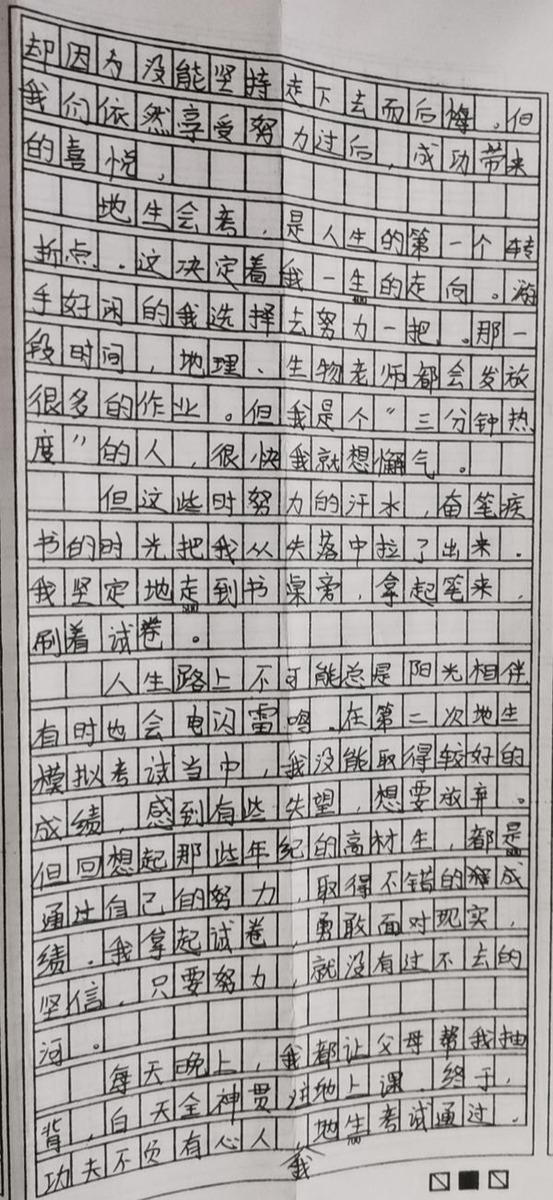 却因为没能坚持走下去而后悔。但
我们依然享受努力过后，成功带来
的喜悦，
地生会考，是人生的第一个转
折点。这决定着我一生的走向。游
手好闲的我选择去努力一把。那一
段时间，地理、生物老师都会发放
很多的作业。但我是个“三分钟热
度”的人，很快我就想懈气。
但这些时努力的汗水，奋笔疾
书的时光把我从失落中拉了出来。
我坚定地走到书桌旁，拿起笔来，
刷着试卷。
人生路上不可能总是阳光相伴
有时也会电闪雷鸣。在第二次地生
模拟考试当中，我没能取得较好的
成绩，感到有些失望，想要放弃。
但回想起那些年纪的高材生，都是
通过自己的努力，取得不错的成
绩。我拿起试卷，勇敢面对现实，
坚信，只要努力，就没有过不去的
河。
每天晚上，我都让父母帮我抽
背，白天全神贯注地上课。终于，
功夫不负有心人，我地生考试通过。